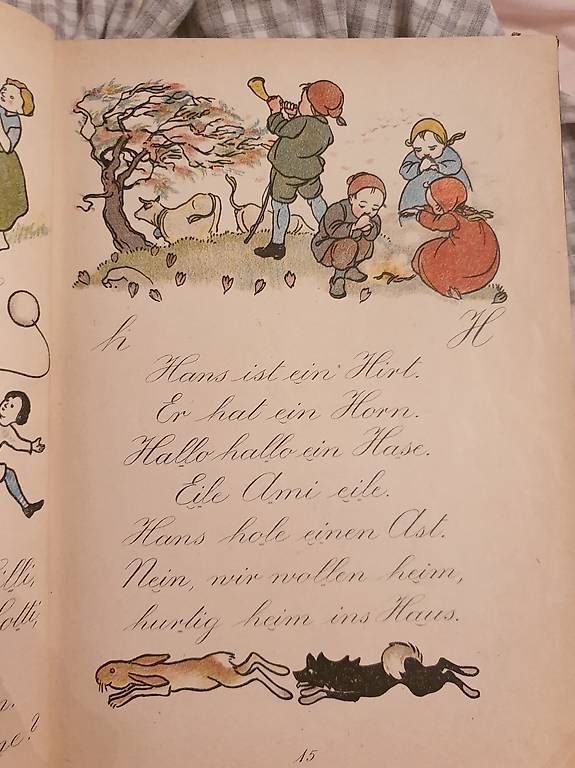 h H
Hans ist ein Hirt.
Er hat ein Horn.
Hallo hallo ein Hase.
Eile Ami eile.
Hans hole einen Ast.
Nein, wir wollen heim,
hurtig heim ins Haus.
15